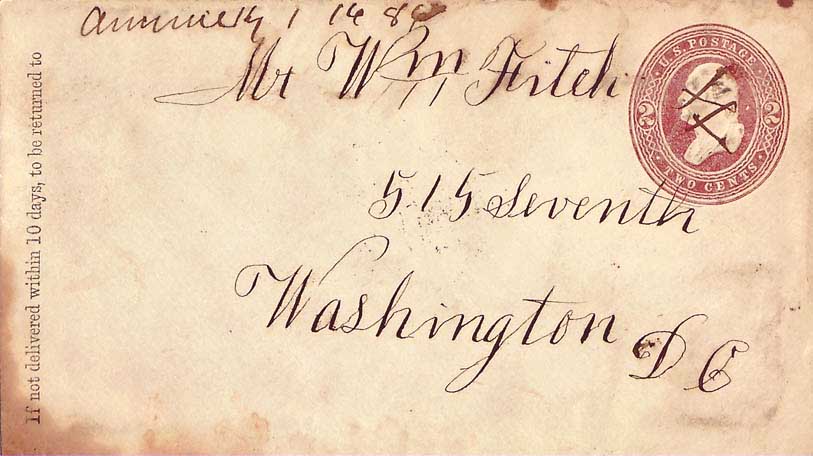 1 16 86
Mr Wm Fitch
515 Seventh
Washington D C
U.S. POSTAGE
2 2
TWO CENTS
If not delivered within 10 days, to be returned to